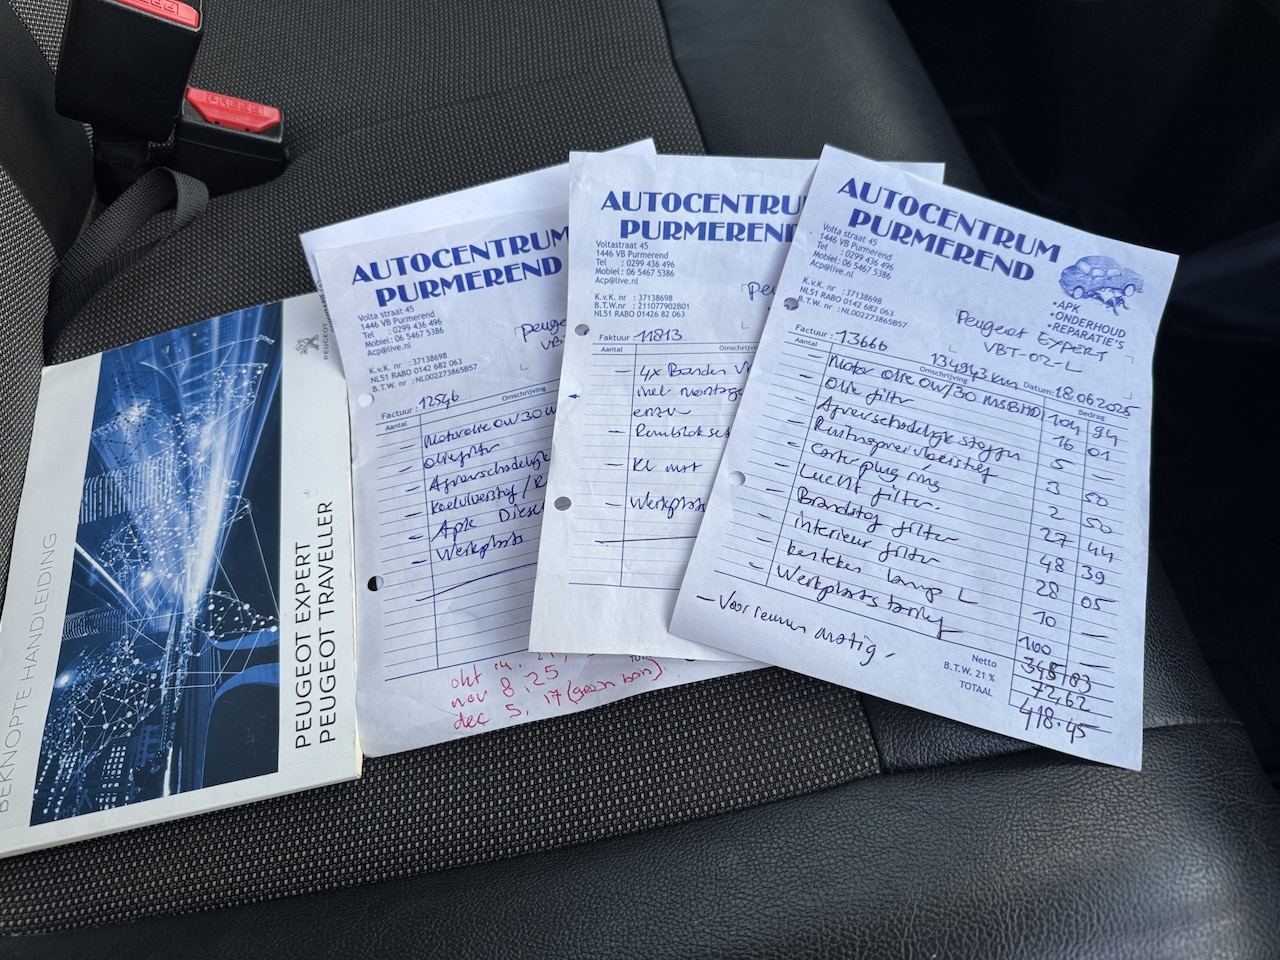 PRESS
PRESS
BEKNOPTE HANDLEIDING
PEUGEOT EXPERT
PEUGEOT TRAVELLER
PEUGEOT
AUTOCENTRUM
PURMEREND
Volta straat 45
1446 VB Purmerend
Tel : 0299 436 496
Mobiel: 06 5467 5386
Acp@live.nl
K.v.K. nr : 37138698
NL51 RABO 0142 682 063
B.T.W. nr : NL002273865B57
Peugeot
VBT-
Factuur : 12546
Aantal Omschrijving
- Motorolie 0W/30
- Oliefilter
- Koelvloeistof /
- Apk Diesel
- Werkplaats
okt 14,
nov 8, 25
dec 5, 17 (geen bon)
AUTOCENTRU
PURMEREND
Voltastraat 45
1446 VB Purmerend
Tel : 0299 436 496
Mobiel : 06 5467 5386
Acp@live.nl
K.v.K. nr : 37138698
B.T.W. nr : 211077902B01
NL51 RABO 01426 82 063
Peu
Faktuur : 11813
Aantal Omschrijvi
- 4x Banden
met montage
- Remblokset
- Kl mat
- Werkplaats
AUTOCENTRUM
PURMEREND
Volta straat 45
1446 VB Purmerend
Tel : 0299 436 496
Mobiel: 06 5467 5386
Acp@live.nl
K.v.K. nr : 37138698
NL51 RABO 0142 682 063
B.T.W. nr : NL002273865B57
•APK
•ONDERHOUD
•REPARATIE'S
Peugeot EXPERT
VBT-02-L
Factuur : 13666 134943 km Datum: 18.06.2025
Aantal Omschrijving Bedrag
- Motor olie 0W/30 104 94
- Olie filtr 16 01
- 5 —
- Ruitensproeivloeistof 3 50
- Carterplug ring 2 50
- Lucht filter. 27 44
- Brandstof filter 48 39
- interieur filter 28 05
- kenteken lamp L 10 —
- Werkplaats tarief 100 —
- Voorremmen matig.
Netto 345,83
B.T.W. 21 % 72,62
TOTAAL 418.45